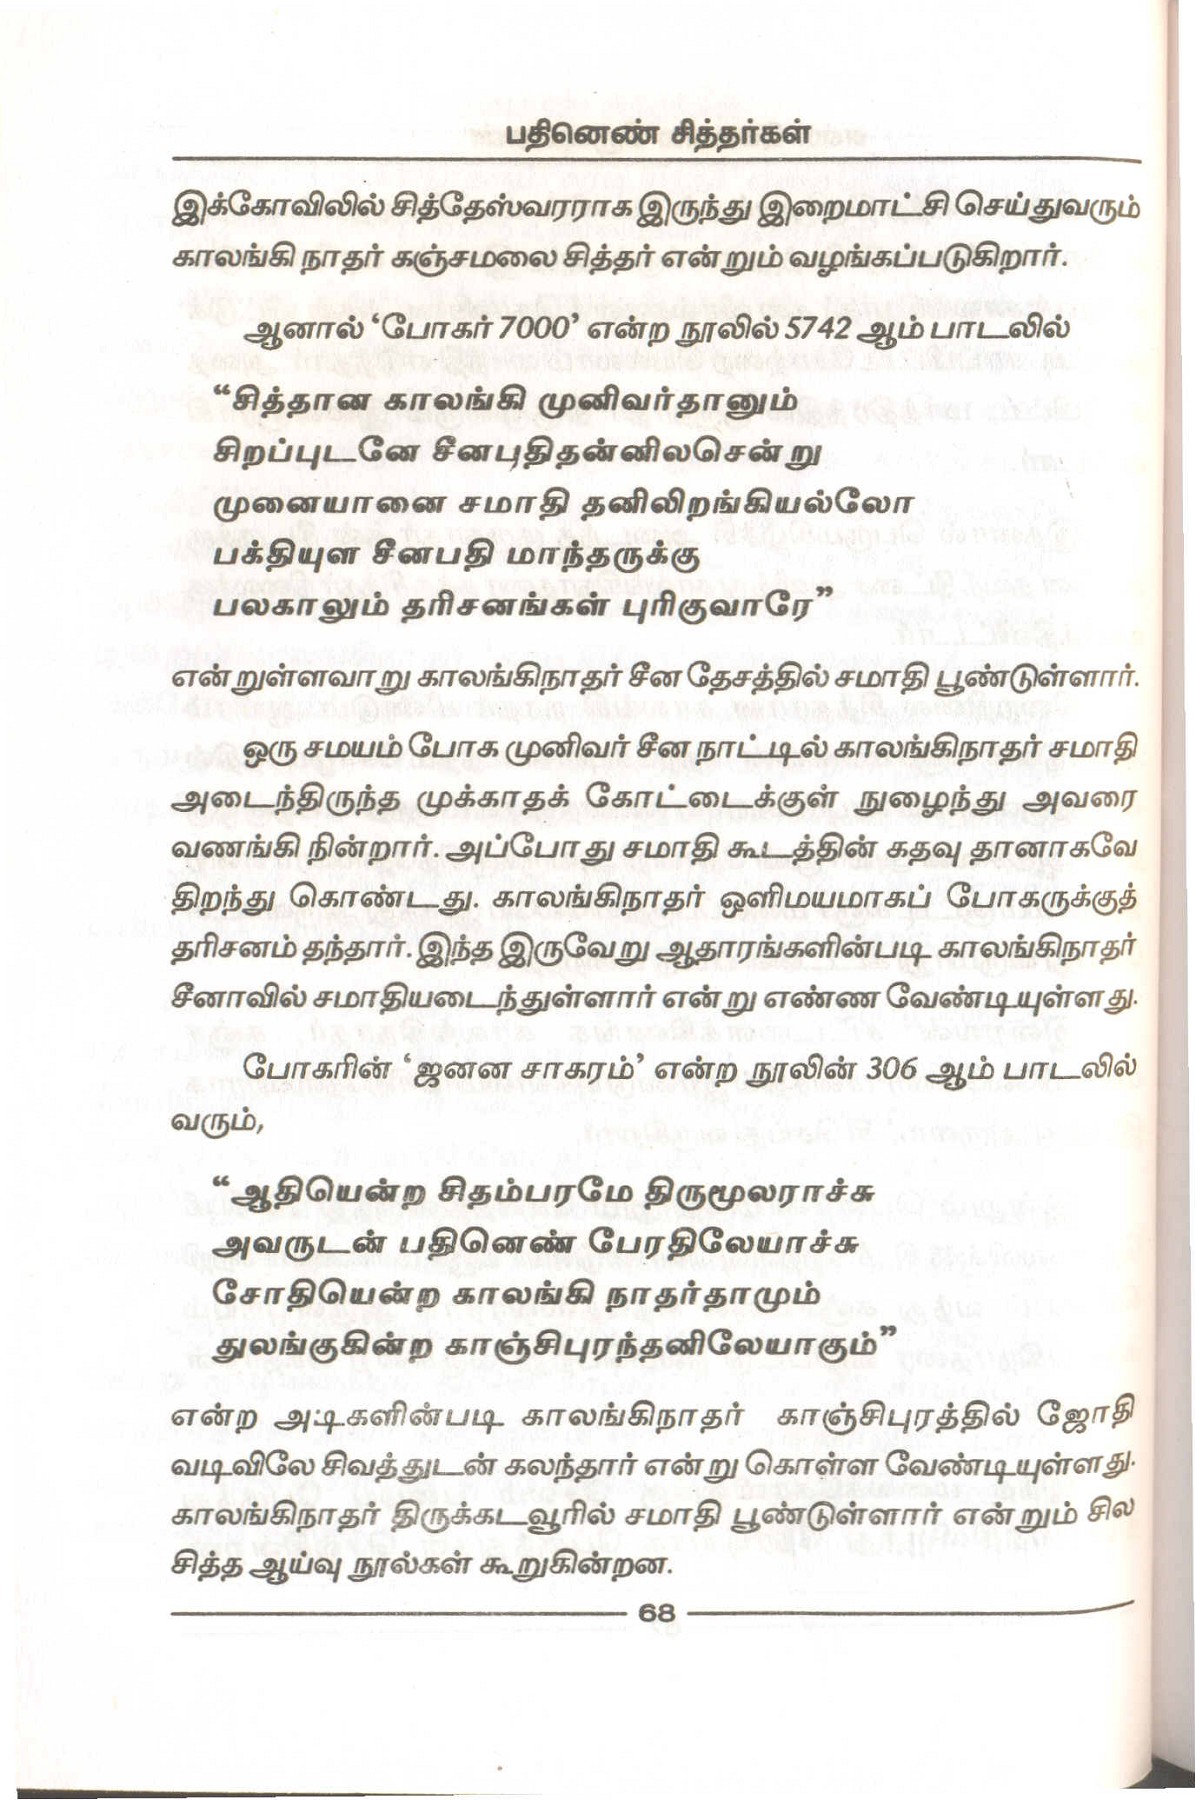 பதினெண் சித்தர்கள்
இக்கோவிலில் சித்தேஸ்வரராக இருந்து இறைமாட்சி செய்துவரும்
காலங்கி நாதர் கஞ்சமலை சித்தர் என்றும் வழங்கப்படுகிறார்.
ஆனால் ‘போகர் 7000’ என்ற நூலில் 5742 ஆம் பாடலில்
“சித்தான காலங்கி முனிவர்தானும்
சிறப்புடனே சீனபுதிதன்னிலசென்று
முனையானை சமாதி தனிலிறங்கியல்லோ
பக்தியுள சீனபதி மாந்தருக்கு
பலகாலும் தரிசனங்கள் புரிகுவாரே”
என்றுள்ளவாறு காலங்கிநாதர் சீன தேசத்தில் சமாதி பூண்டுள்ளார்.
ஒரு சமயம் போக முனிவர் சீன நாட்டில் காலங்கிநாதர் சமாதி
அடைந்திருந்த முக்காதக் கோட்டைக்குள் நுழைந்து அவரை
வணங்கி நின்றார். அப்போது சமாதி கூடத்தின் கதவு தானாகவே
திறந்து கொண்டது. காலங்கிநாதர் ஒளிமயமாகப் போகருக்குத்
தரிசனம் தந்தார். இந்த இருவேறு ஆதாரங்களின்படி காலங்கிநாதர்
சீனாவில் சமாதியடைந்துள்ளார் என்று எண்ண வேண்டியுள்ளது.
போகரின் ‘ஜனன சாகரம்’ என்ற நூலின் 306 ஆம் பாடலில்
வரும்,
“ஆதியென்ற சிதம்பரமே திருமூலராச்சு
அவருடன் பதினெண் பேரதிலேயாச்சு
சோதியென்ற காலங்கி நாதர்தாமும்
துலங்குகின்ற காஞ்சிபுரந்தனிலேயாகும்”
என்ற அடிகளின்படி காலங்கிநாதர் காஞ்சிபுரத்தில் ஜோதி
வடிவிலே சிவத்துடன் கலந்தார் என்று கொள்ள வேண்டியுள்ளது.
காலங்கிநாதர் திருக்கடவூரில் சமாதி பூண்டுள்ளார் என்றும் சில
சித்த ஆய்வு நூல்கள் கூறுகின்றன.
68